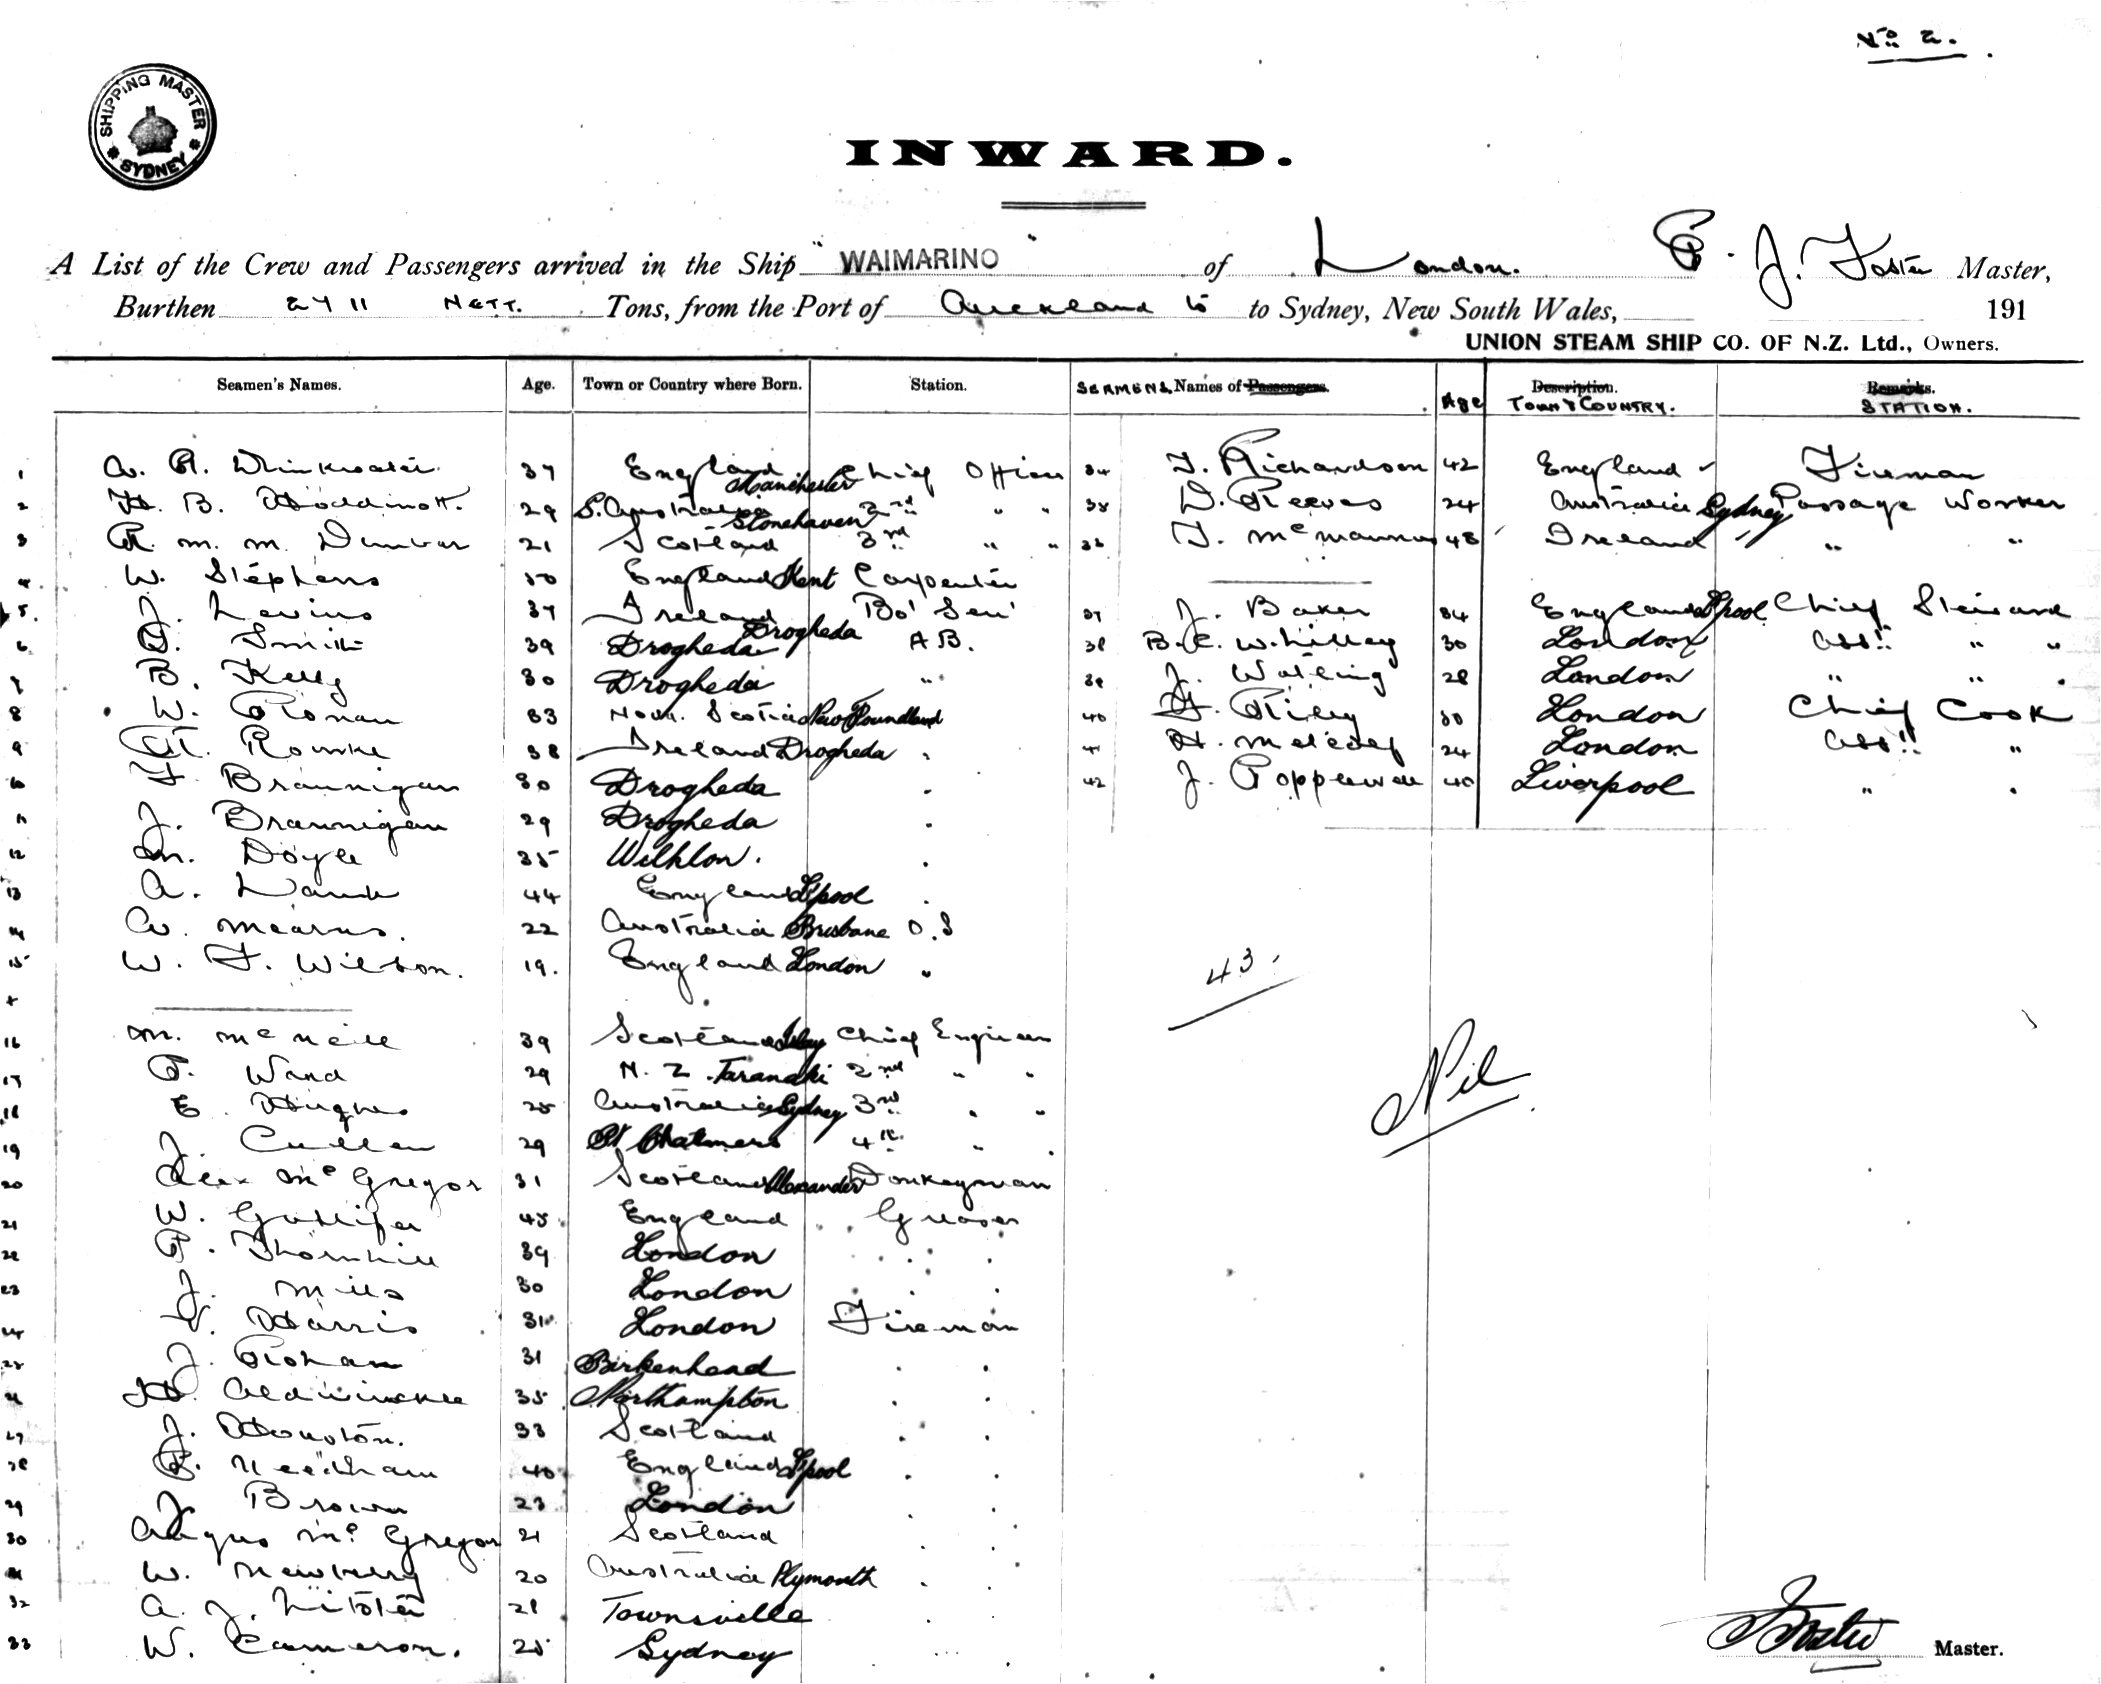 No 2.
SHIPPING MASTER SYDNEY
INWARD.
A List of the Crew and Passengers arrived in the Ship "WAIMARINO" of London. J. Foster Master,
Burthen 2711 NETT. Tons, from the Port of Auckland to to Sydney, New South Wales, 191
UNION STEAM SHIP CO. OF N.Z. Ltd., Owners.
Seamen's Names. Age. Town or Country where Born. Station. SEAMENS Names of Passengers. Age Description. Remarks.
TOWN & COUNTRY. STATION.
1 Drinkwater 37 England Manchester Chief Officer
2 H. B. Hoddinott. 29 S. Australia 2nd " "
3 R. M. M. Dunbar 21 Scotland Stonehaven 3rd " "
4 W. Stephens 50 England Kent Carpenter
5 J. Levins 37 Ireland Drogheda Bo'Sen'
6 Smith 39 Drogheda A B.
7 B. Kelly 30 Drogheda "
8 W. Ronan 33 Nova Scotia New Foundland
9 Rourke 38 Ireland Drogheda "
10 Brannigan 30 Drogheda "
11 J. Brannigan 29 Drogheda "
12 M. Doyle 35 "
13 A. 44 England L'pool "
14 Mearns. 22 Australia Brisbane O.S
15 W. F. Wilson. 19. England London "
16 M. McNeill 39 Scotland Islay Chief Engineer
17 P. Ward 29 N. Z. Taranaki 2nd " "
18 E. Hughes 25 Australia Sydney 3rd " "
19 J. Cullen 29 Pt Chalmers 4th " "
20 Alex McGregor 31 Scotland Alexander Donkeyman
21 W. Gulliver 45 England Greaser
22 P. Thornhill 39 London " "
23 J. Mills 30 London " "
24 Harris 31 London Fireman
25 J. Rohan 31 Birkenhead " "
26 H. Aldwinckle 35 Northampton " "
27 J. Houston. 33 Scotland " "
28 Needham 40 England L'pool " "
29 J. Brown 23 London "
30 Angus McGregor 21 Scotland " "
31 W. Newbery 20 Australia Plymouth " "
32 A. J. 28 Townsville " "
33 W. Cameron. 25 Sydney " "
34 T. Richardson 42 England Fireman
35 D. Reeves 24 Australia Sydney Passage Worker
36 T. McMannus 48 Ireland " " "
37 J. Baker 34 England L'pool Chief Steward
38 B. C. Whilley 30 London Asst " "
39 J. Watling 28 London " " "
40 Riley 30 London Chief Cook
41 H. Metcalf 24 London Asst "
42 J. Popplewell 40 Liverpool " "
43.
Nil
J Foster Master.